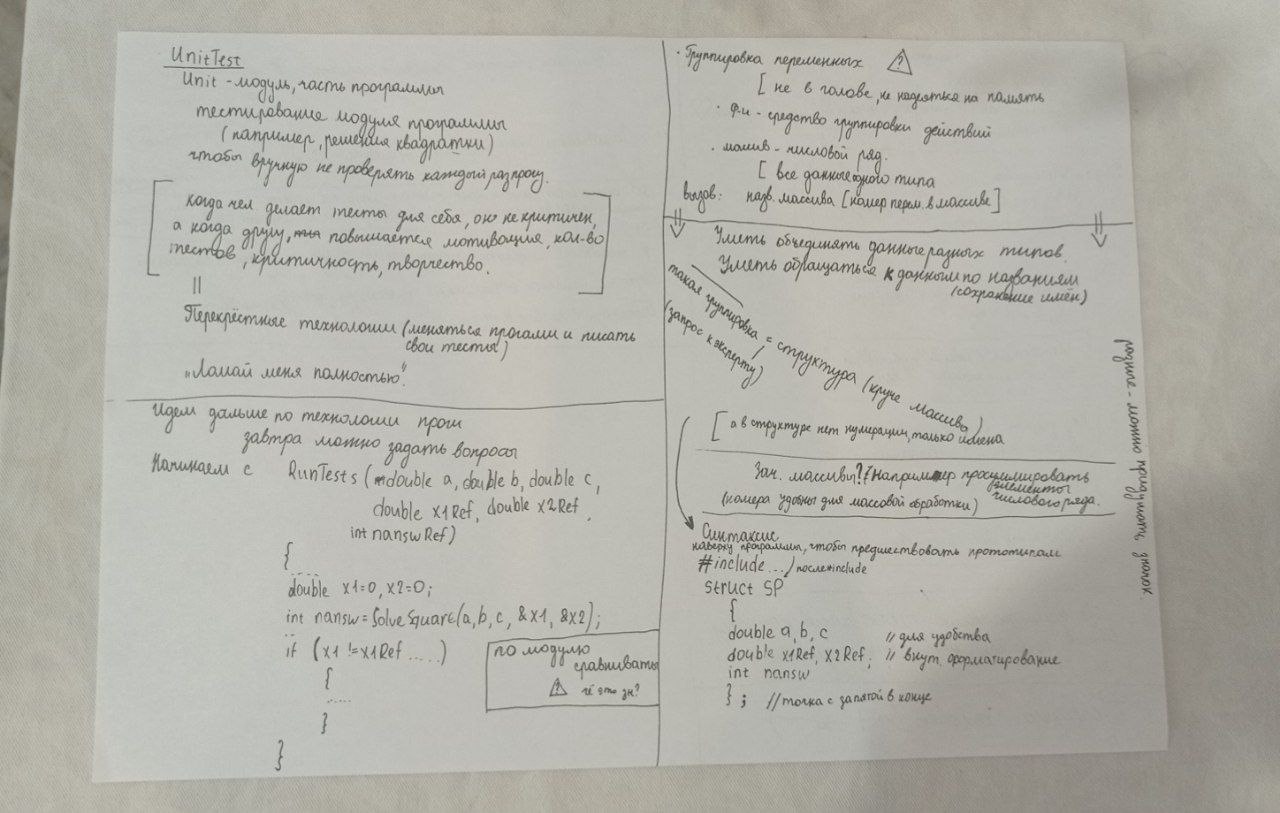 UnitTest
Unit - модуль, часть программы
тестирование модуля программы
(например, решения квадратки)
чтобы вручную не проверять каждый раз прогу.
когда чел делает тесты для себя, он не критичен,
а когда другу, повышается мотивация, кол-во
тестов, критичность, творчество.
||
Перекрёстные технологии (меняться прогами и писать
свои тесты)
"Ломай меня полностью".
Идем дальше по технологии прогн
завтра можно задать вопросы
Начинаем с RunTests (double a, double b, double c,
double x1Ref, double x2Ref,
int nanswRef)
{
....
double x1=0, x2=0;
int nansw=SolveSquare(a, b, c, &x1, &x2);
..
if (x1 != x1Ref ....)
{
.....
}
}
по модулю
сравнивать
⚠ чё это зн?
· Группировка переменных
[ не в голове, не надеяться на память
· ф-и - средство группировки действий
· массив - числовой ряд.
[ все данные одного типа
вызов: назв. массива [номер перем. в массиве]
Уметь объединять данные разных типов.
Уметь обращаться к данным по названиям
(сохранение имён)
такая группировка = структура (круче массива)
(запрос к эксперту)
[ а в структуре нет нумерации, только имена
Зач. массивы? Например просуммировать
элементы
числового ряда.
(номера удобны для массовой обработки)
Синтаксис
наверху программы, чтобы предшествовать прототипам
#include... / после #include
struct SP
{
double a, b, c // для удобства
double x1Ref, x2Ref; // внут. форматирование
int nansw
}; // точка с запятой в конце
можно придумать